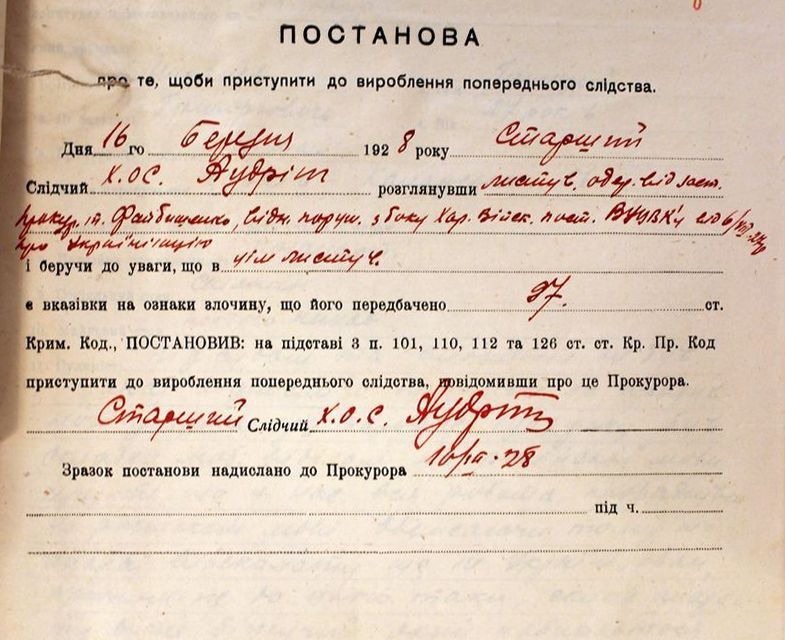 ПОСТАНОВА
про те, щоби приступити до вироблення попереднього слідства.
Дня 16 го Березня 1928 року Старший
Слідчий Х.О.С. Аудріт розглянувши листув. одер. від заст.
прокур. т. Файбишенко, відн. поруш. з боку Хар. Військ. пост. ВУЦВК'у від 6/
про Українізацію
і беручи до уваги, що в цім листув.
є вказівки на ознаки злочину, що його передбачено 97. ст.
Крим. Код., ПОСТАНОВИВ: на підставі 3 п. 101, 110, 112 та 126 ст. ст. Кр. Пр. Код
приступити до вироблення попереднього слідства, повідомивши про це Прокурора.
Старший Слідчий Х.О.С. Аудріт
Зразок постанови надислано до Прокурора 16/III-28
під ч.